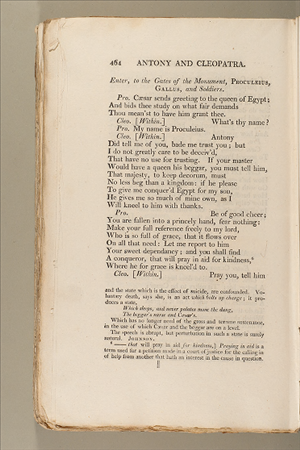 464 ANTONY AND CLEOPATRA.
Enter, to the Gates of the Monument, PROCULEIUS,
GALLUS, and Soldiers.
Pro. Cæsar sends greeting to the queen of Egypt;
And bids thee study on what fair demands
Thou mean'st to have him grant thee.
Cleo. [Within.] What's thy name?
Pro. My name is Proculeius.
Cleo. [Within.] Antony
Did tell me of you, bade me trust you; but
I do not greatly care to be deceiv'd,
That have no use for trusting. If your master
Would have a queen his beggar, you must tell him,
That majesty, to keep decorum, must
No less beg than a kingdom: if he please
To give me conquer'd Egypt for my son,
He gives me so much of mine own, as I
Will kneel to him with thanks.
Pro. Be of good cheer;
You are fallen into a princely hand, fear nothing:
Make your full reference freely to my lord,
Who is so full of grace, that it flows over
On all that need: Let me report to him
Your sweet dependancy; and you shall find
A conqueror, that will pray in aid for kindness,
Where he for grace is kneel'd to.
Cleo. [Within.] Pray you, tell him
and the state which is the effect of suicide, are confounded. Vo-
luntary death, says she, is an act which bolts up change; it pro-
duces a state,
Which sleeps, and never palates more the dung,
The beggar's nurse and Cæsar's.
Which has no longer need of the gross and terrene sustenance,
in the use of which Cæsar and the beggar are on a level.
The speech is abrupt, but perturbation in such a state is surely
natural. JOHNSON.
— that will pray in aid for kindness,] Praying in aid is a
term used for a petition made in a court of justice for the calling in
of help from another that hath an interest in the cause in question.